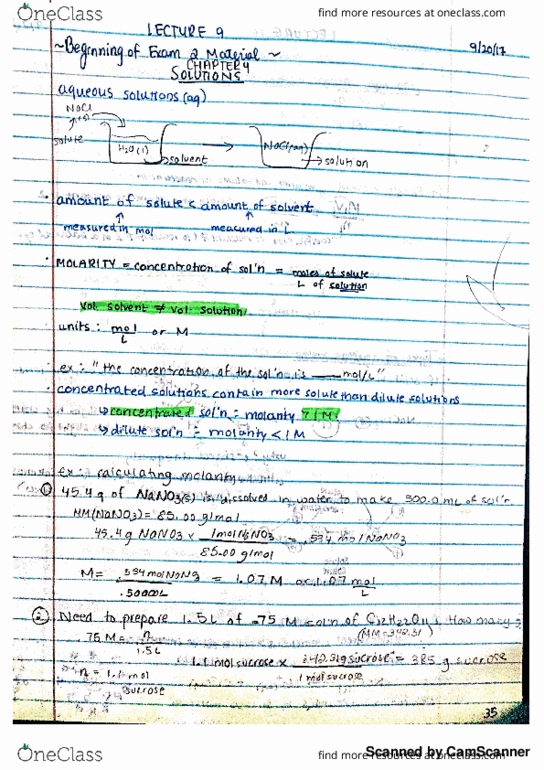 OneClass
find more resources at oneclass.com
LECTURE 9
~Beginning of Exam 2 Material ~
9/20/17
CHAPTER 4
SOLUTIONS
aqueous solutions (aq)
NaCl
(s)
solute
H2O(l)
solvent
NaCl(aq)
solution
amount of solute < amount of solvent
measured in mol
measured in L
MOLARITY = concentration of sol'n = moles of solute
L of solution
Vol. solvent ≠ Vol. solution
units: mol or M
L
ex: "the concentration of the sol'n is ___ mol/L"
concentrated solutions contain more solute than dilute solutions
↳ concentrated sol'n = molarity > 1 M
↳ dilute sol'n = molarity < 1 M
ex: calculating molarity
① 45.4g of NaNO3(s) is dissolved in water to make 500.0 mL of sol'n
MM(NaNO3) = 85.00 g/mol
45.4g NaNO3 × 1 mol NaNO3 = .534 mol NaNO3
85.00 g/mol
M = .534 mol NaNO3 = 1.07 M or 1.07 mol
.50000L L
② Need to prepare 1.5L of .75 M sol'n of C12H22O11. How many g
(MM=342.31)
.75 M = n
1.5L
1.1 mol sucrose × 342.31g sucrose = 385 g sucrose
1 mol sucrose
n = 1.1 mol
sucrose
35
OneClass
find more resources at oneclass.com
Scanned by CamScanner